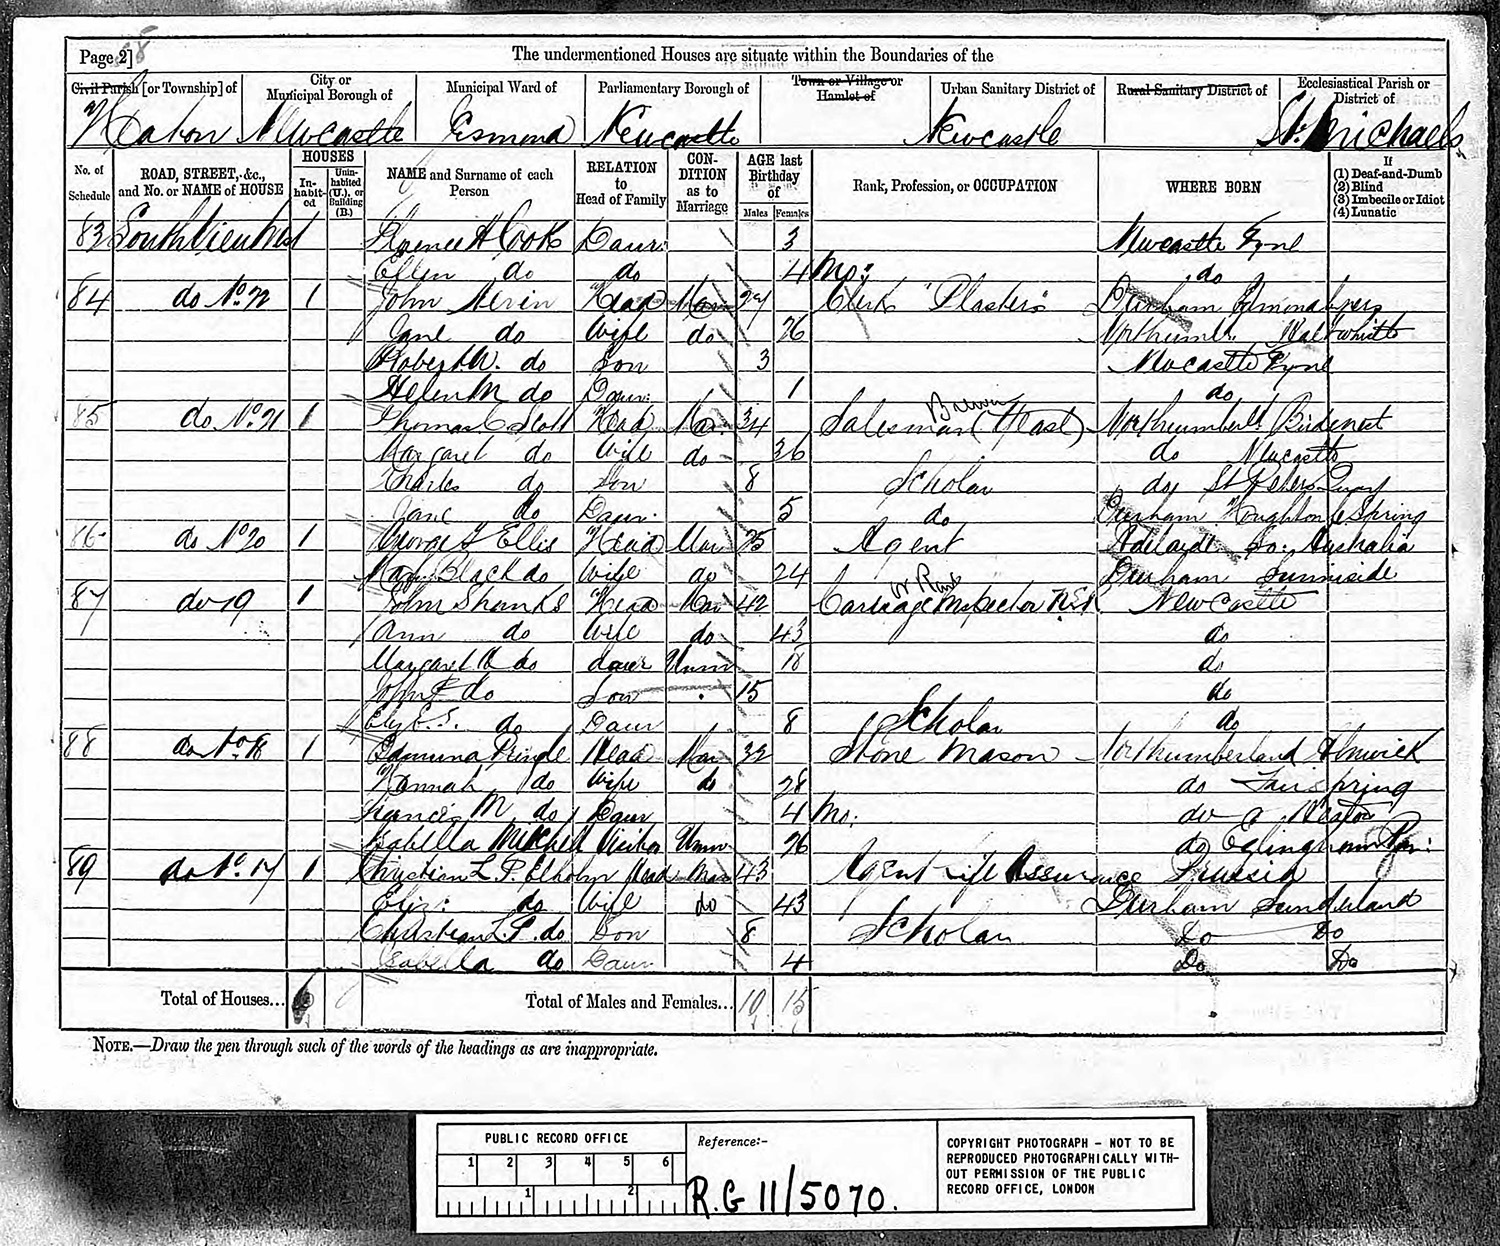 Page 2] 28
The undermentioned Houses are situate within the Boundaries of the
Civil Parish [or Township] of City or Municipal Borough of Municipal Ward of Parliamentary Borough of Town or Village or Hamlet of Urban Sanitary District of Rural Sanitary District of Ecclesiastical Parish or District of
Heaton Newcastle Jesmond Newcastle Newcastle St. Michaels
No. of Schedule ROAD, STREET, &c., and No. or NAME of HOUSE HOUSES Inhabited Uninhabited (U.), or Building (B.) NAME and Surname of each Person RELATION to Head of Family CONDITION as to Marriage AGE last Birthday of Males Females Rank, Profession, or OCCUPATION WHERE BORN If (1) Deaf-and-Dumb (2) Blind (3) Imbecile or Idiot (4) Lunatic
83 South View West 1 Florence H Cook Daur. 3 Newcastle Tyne
Ellen do do 4 Mo: do
84 do No. 22 1 John Head Mar 27 Clerk Durham
Jane do Wife do 26 Northumb.
Robert W. do Son 3 Newcastle Tyne
Helen M do Daur. 1 do
85 do No. 21 1 Thomas C Scott Head Mar. 34 Salesman Northumberld.
Margaret do Wife do 36 do Newcastle
Charles do Son 8 Scholar do St Peters Quay
Jane do Daur. 5 do Durham Houghton le Spring
86 do No. 20 1 George Ellis Head Mar 25 Agent Adelaide So: Australia
Mary Black do Wife do 24 Durham Sunniside
87 do 19 1 John Shanks Head Mar 42 Carriage Inspector N.E.R Newcastle
Ann do Wife do 43 do
Margaret do daur Unm 18 do
John do Son 15 do
Eliz. S. do Daur 8 Scholar do
88 do No. 18 1 Edmund Pringle Head Mar 32 Stone Mason Northumberland Alnwick
Hannah do Wife do 28 do
Frances M. do Daur 4 Mo: do Heaton
Isabella Mitchell Visitor Unm 26 do Eglingham
89 do No. 17 1 Christian L. P. Elholm Head Mar 43 Agent Life Assurance Prussia
Eliz: do Wife do 43 Durham Sunderland
Christian L.P. do Son 8 Scholar Do Do
Isabella do Daur 4 Do Do
Total of Houses... 6 Total of Males and Females... 10 15
NOTE.—Draw the pen through such of the words of the headings as are inappropriate.
PUBLIC RECORD OFFICE
1 2 3 4 5 6
1 2
Reference:-
R.G 11/5070.
COPYRIGHT PHOTOGRAPH - NOT TO BE
REPRODUCED PHOTOGRAPHICALLY WITH-
OUT PERMISSION OF THE PUBLIC
RECORD OFFICE, LONDON